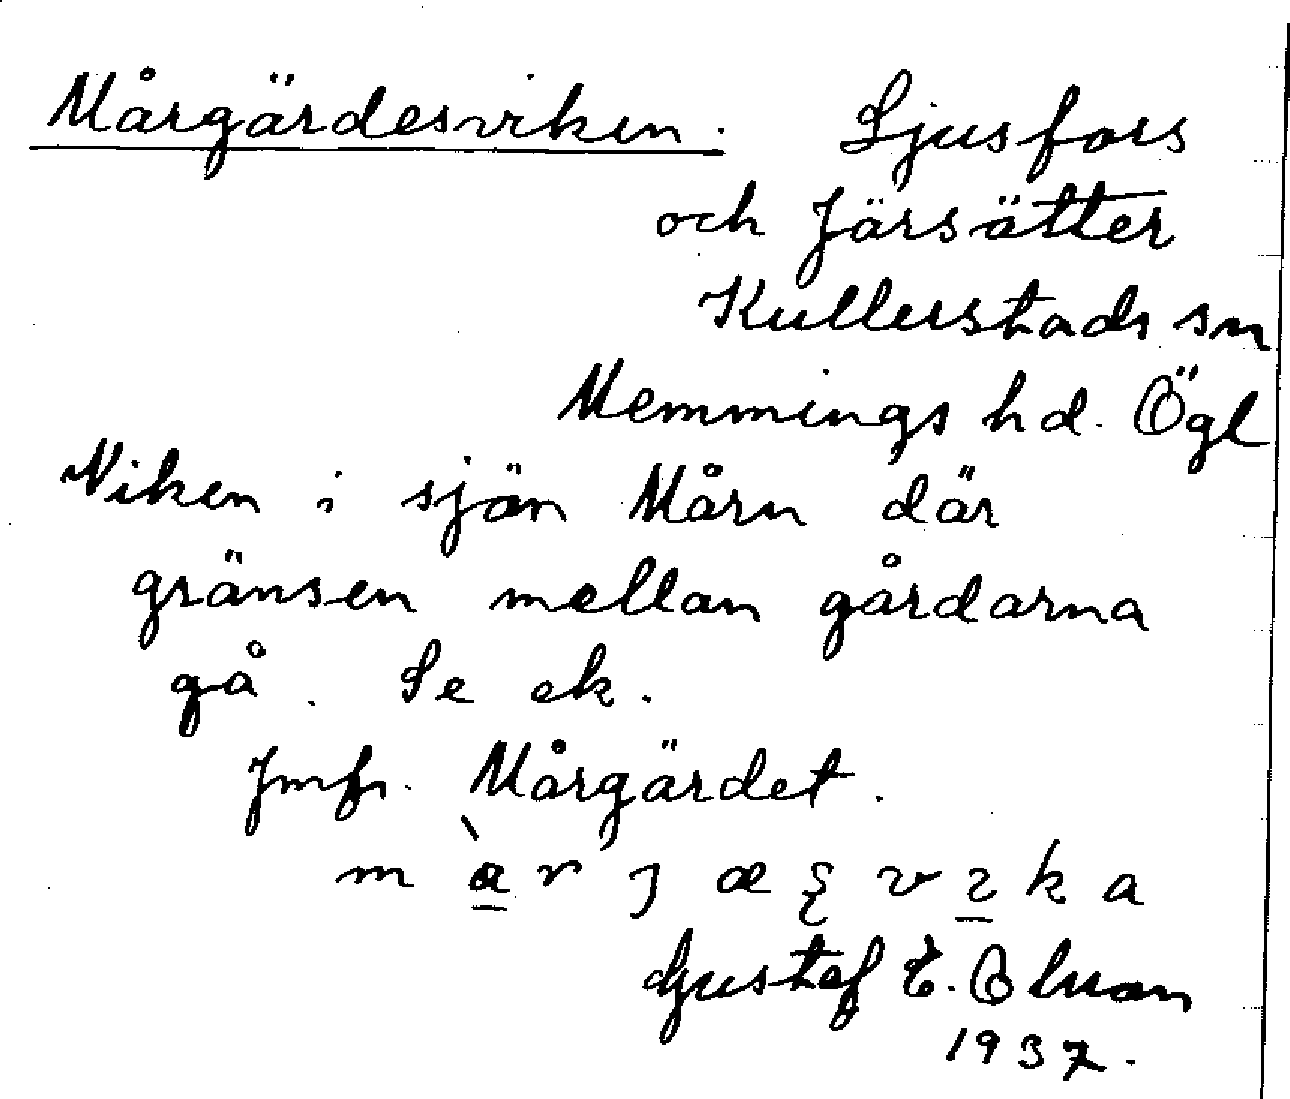 Mårgärdesviken. Ljusfors
och Järsätter
Kullerstads sn
Memmings hd. Ögl
Viken i sjön Mårn där
gränsen mellan gårdarna
gå. Se ek.
Jmfr. Mårgärdet.
Gustaf E. Olsson
1937.